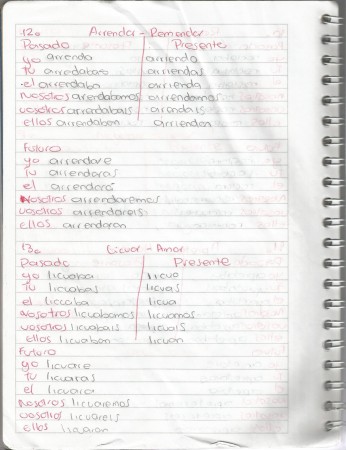 12. Arrendar - Remendar
Pasado Presente
yo arrendo arriendo
Tu arrendabas arriendas
el arrendaba arrienda
Nosotros arrendabamos arrendamos
vosotros arrendabais arrendais
ellos arrendaban arriendan
Futuro
yo arrendare
Tu arrendaras
el arrendara
Nosotros arrendaremos
vosotros arrendareis
ellos arrendaran
13. Licuar - Amar
Pasado Presente
yo licuaba licuo
Tu licuabas licuas
el licuaba licua
Nosotros licuabamos licuamos
vosotros licuabais licuais
ellos licuaban licuan
Futuro
yo licuare
Tu licuaras
el licuara
Nosotros licuaremos
vosotros licuareis
ellos licuaran